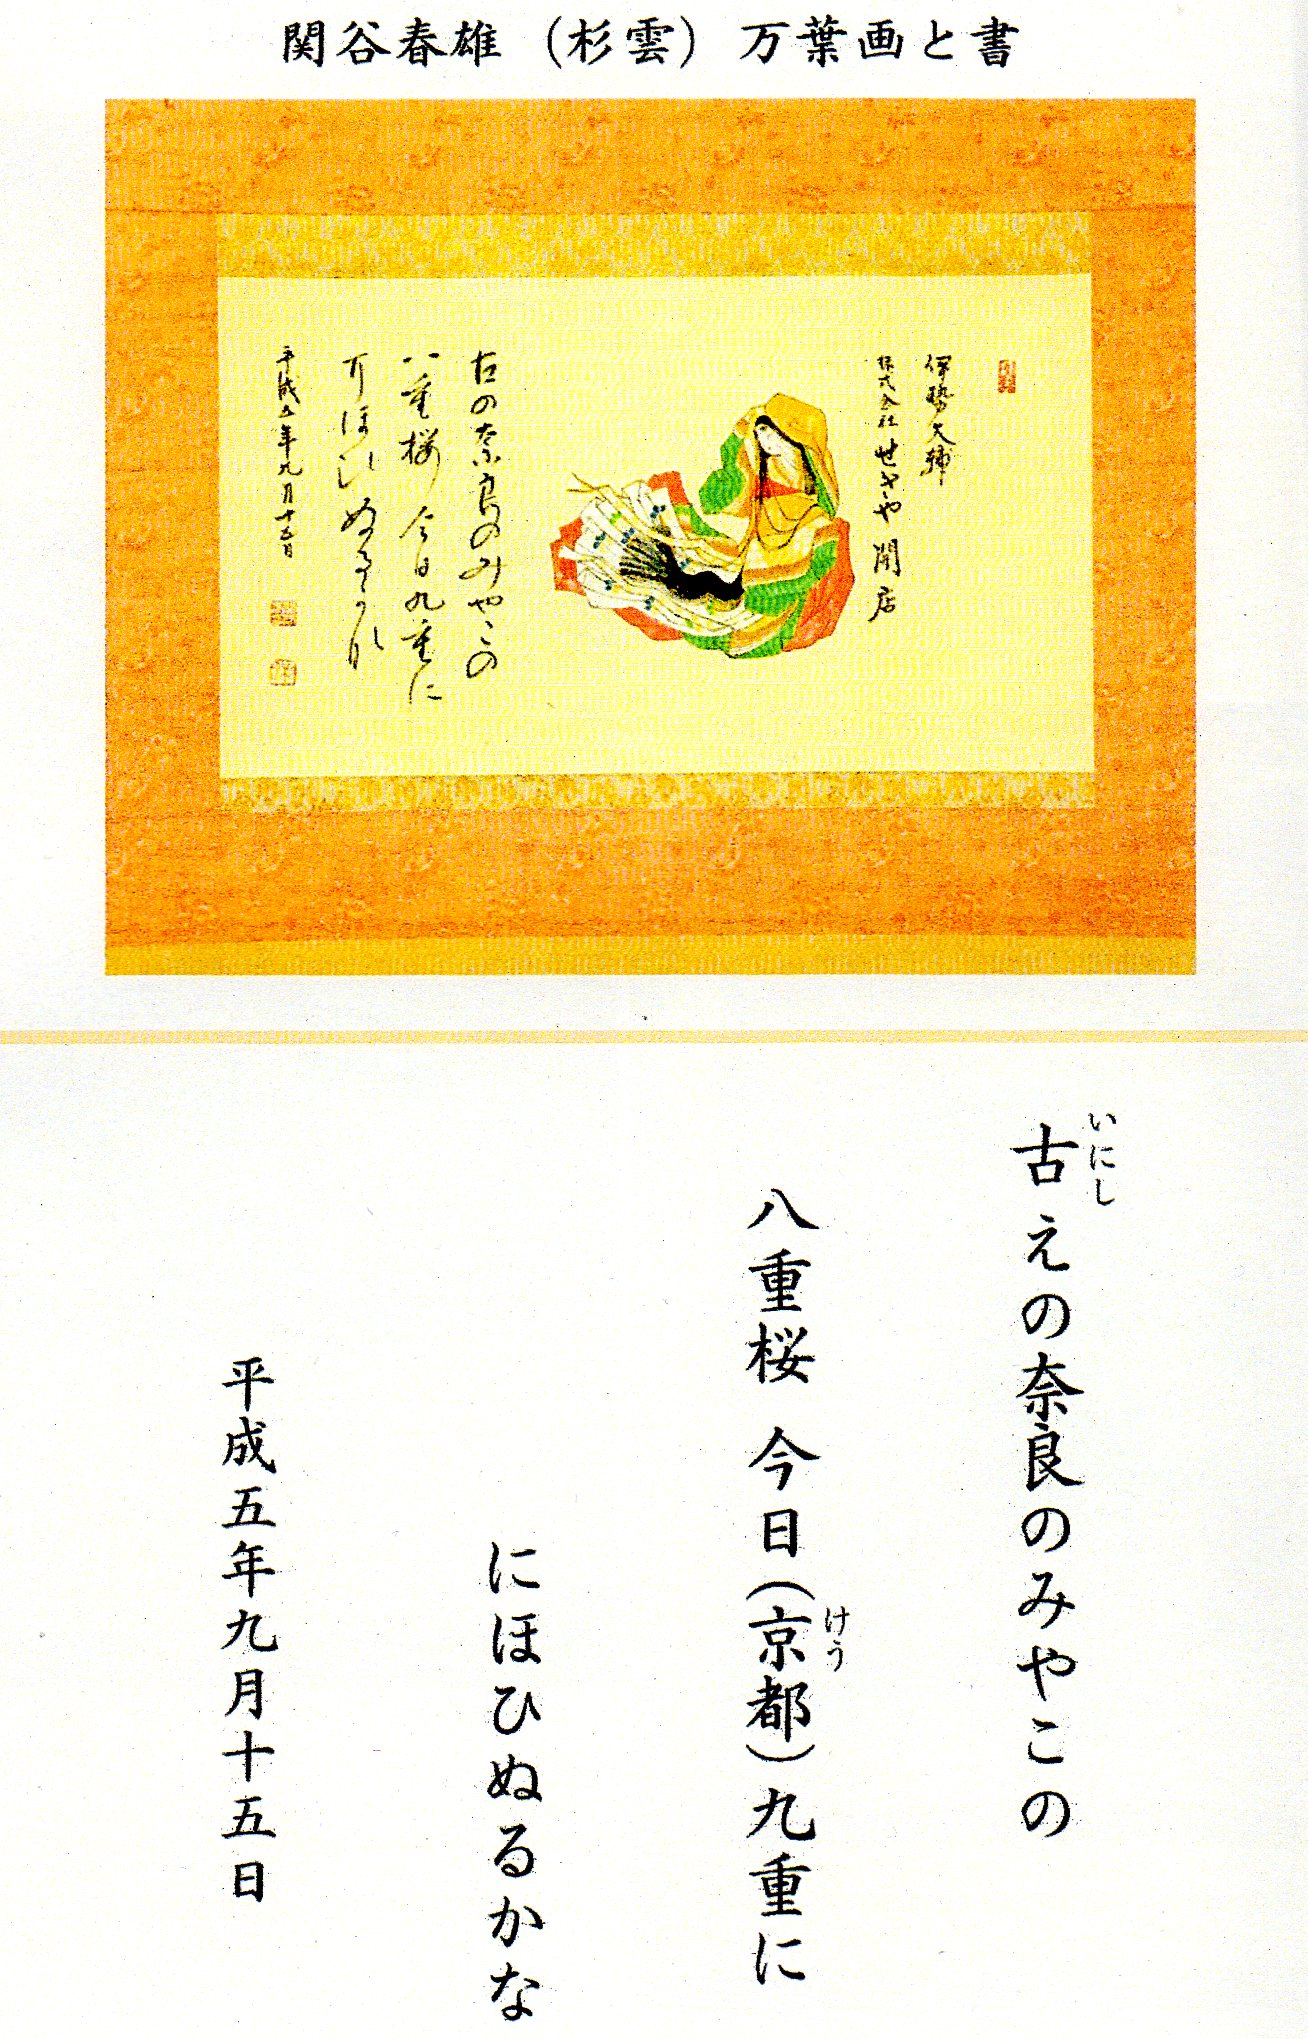 関谷春雄（杉雲）万葉画と書
伊勢大輔
株式会社せきや開店
古の奈良のみやこの
八重桜今日九重に
にほひぬるかな
平成五年九月十五日
古えの奈良のみやこの
いにし
八重桜 今日（京都）九重に
けう
にほひぬるかな
平成五年九月十五日